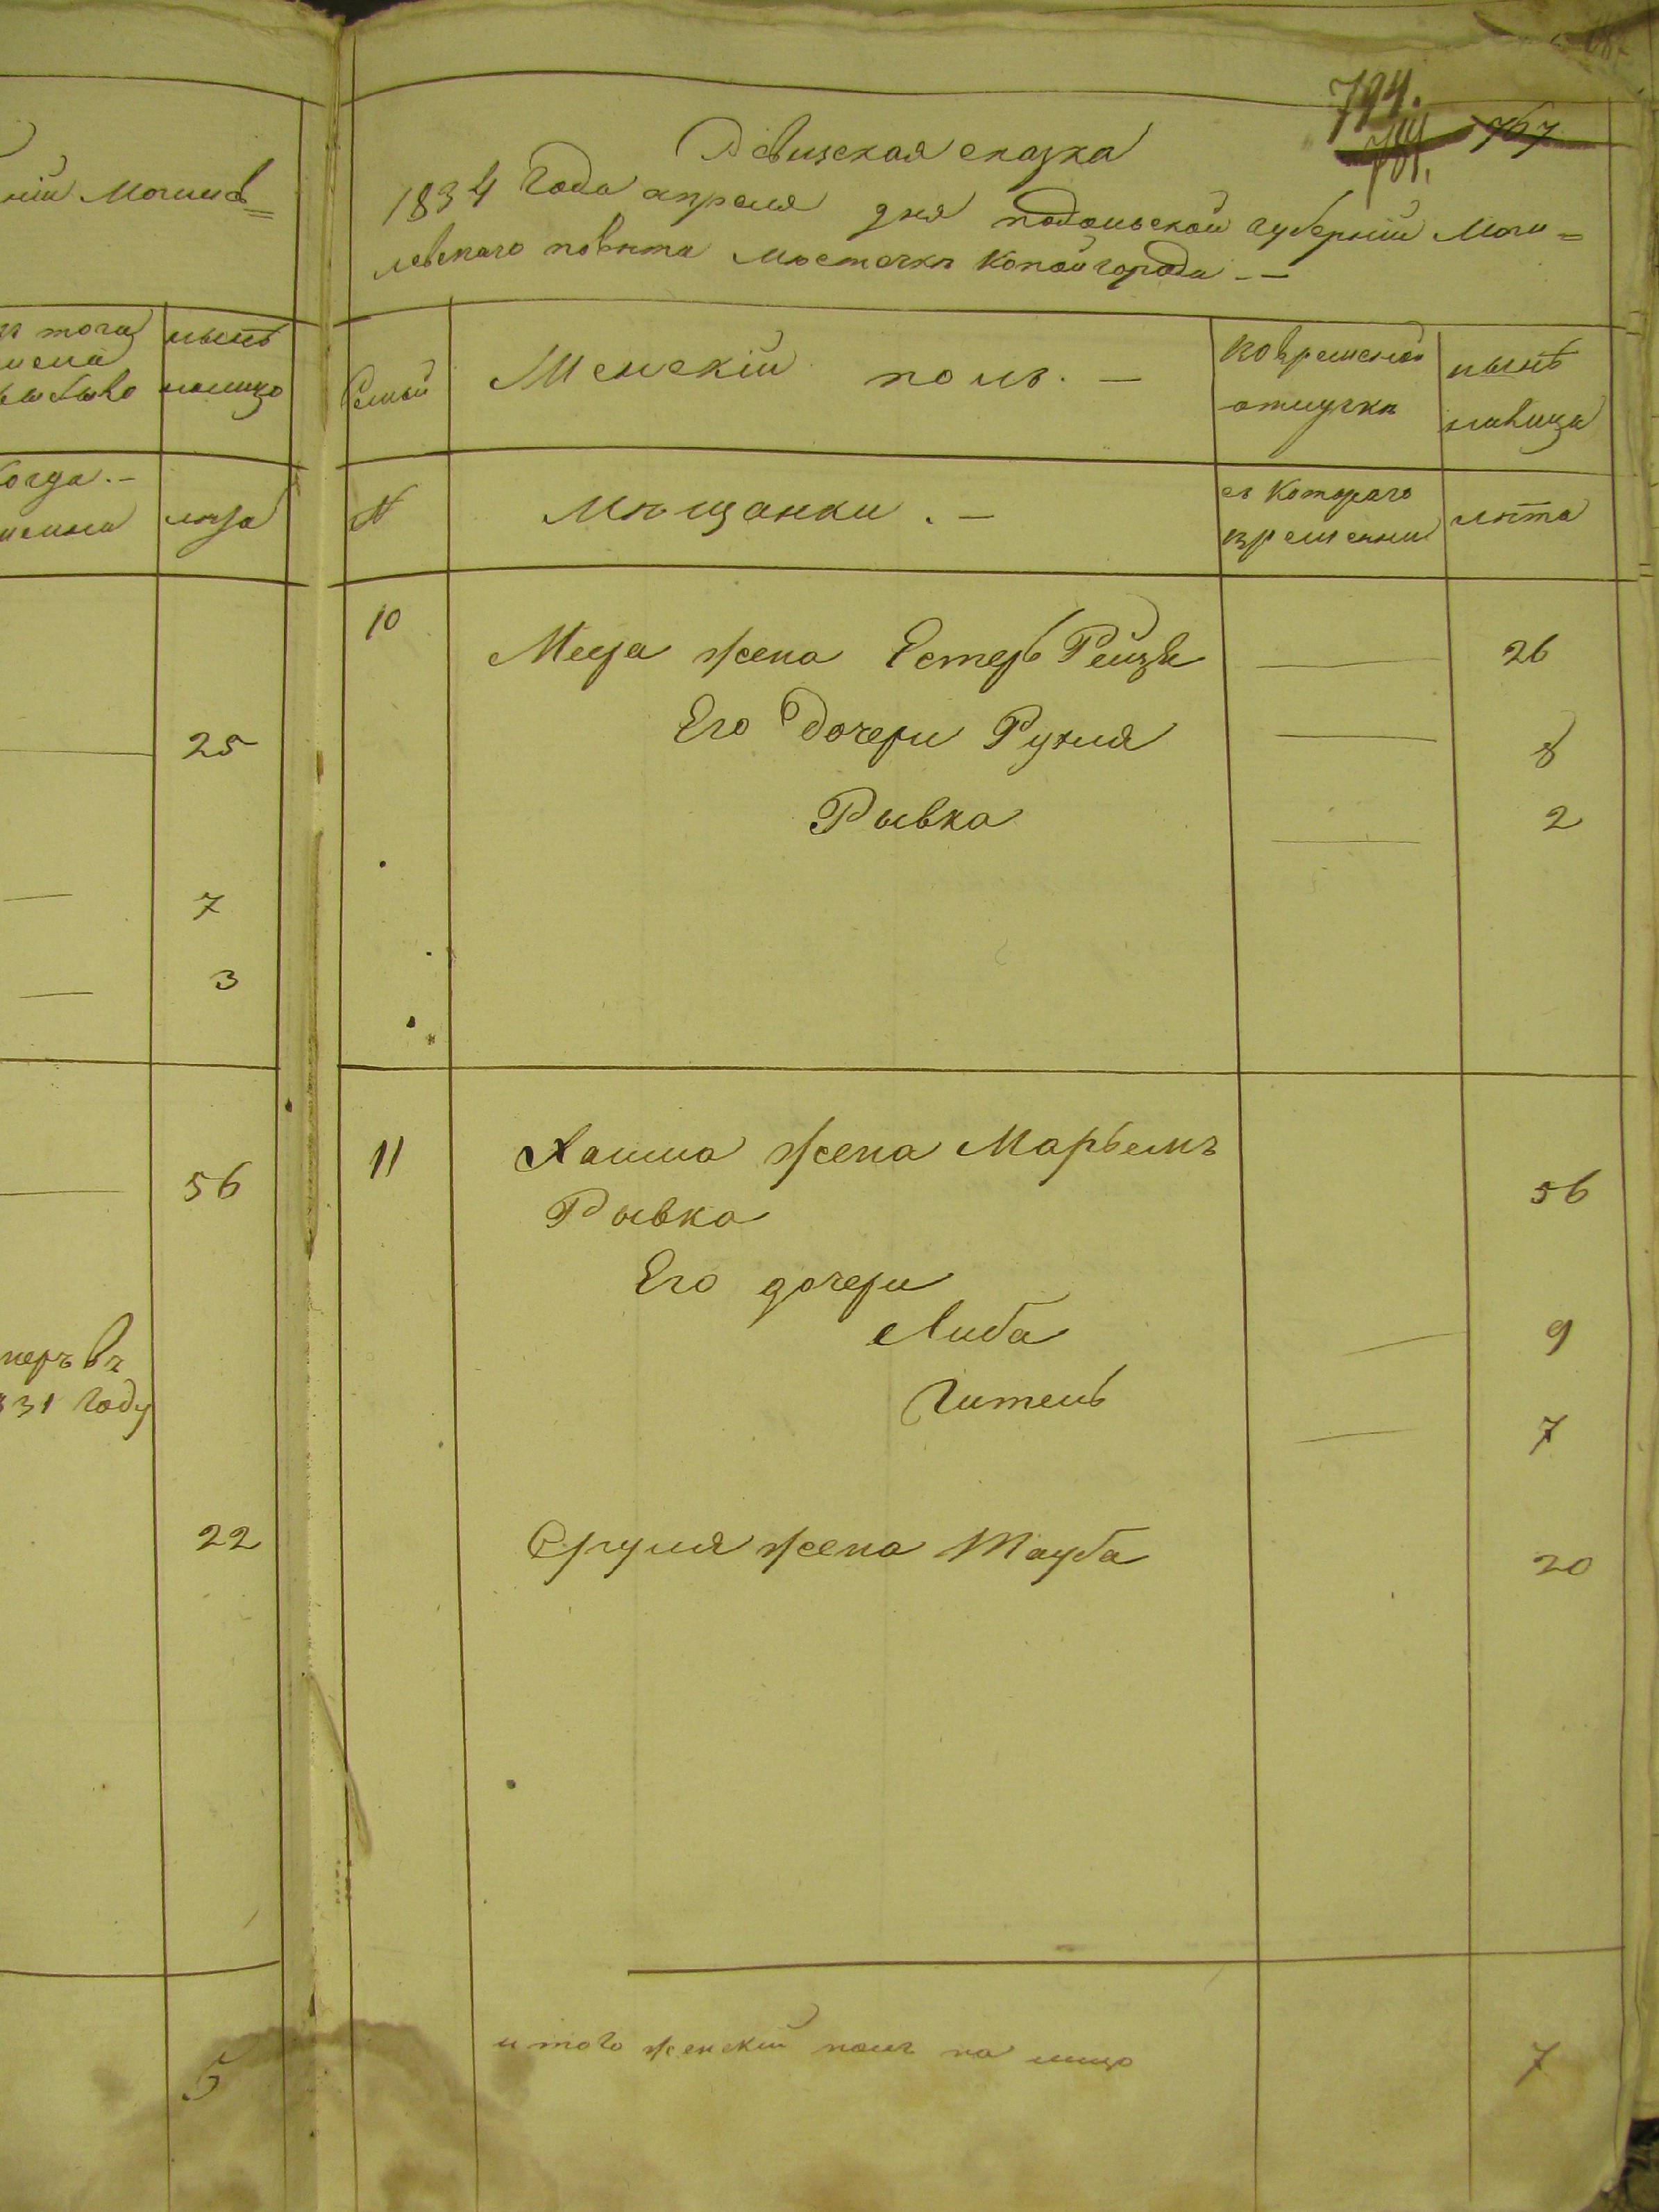 ній Могилев=
нынѣ
налицо
когда.—
лѣта
25
7
3
56
меръ въ
831 году
22
5
794.
784. 767
Ревизская сказка
1834 Года апреля дня подольской губерній Моги=
левскаго повѣта мѣстечкѣ Копайгорода —
Семьи
Женскій полъ. —
во временной
отлучкѣ
нынѣ
на лицо
№
Мѣщанки. —
съ которого
времянни
лѣта
10
жена Естеръ Рейзя 26
Его Дочери Рухля 8
Рывка 2
11
Хаима жена Марьемъ
Рывка 56
Его дочери
Либа 9
Гитель 7
Сруля жена Тауба 20
итого женскій полъ на лицо 7